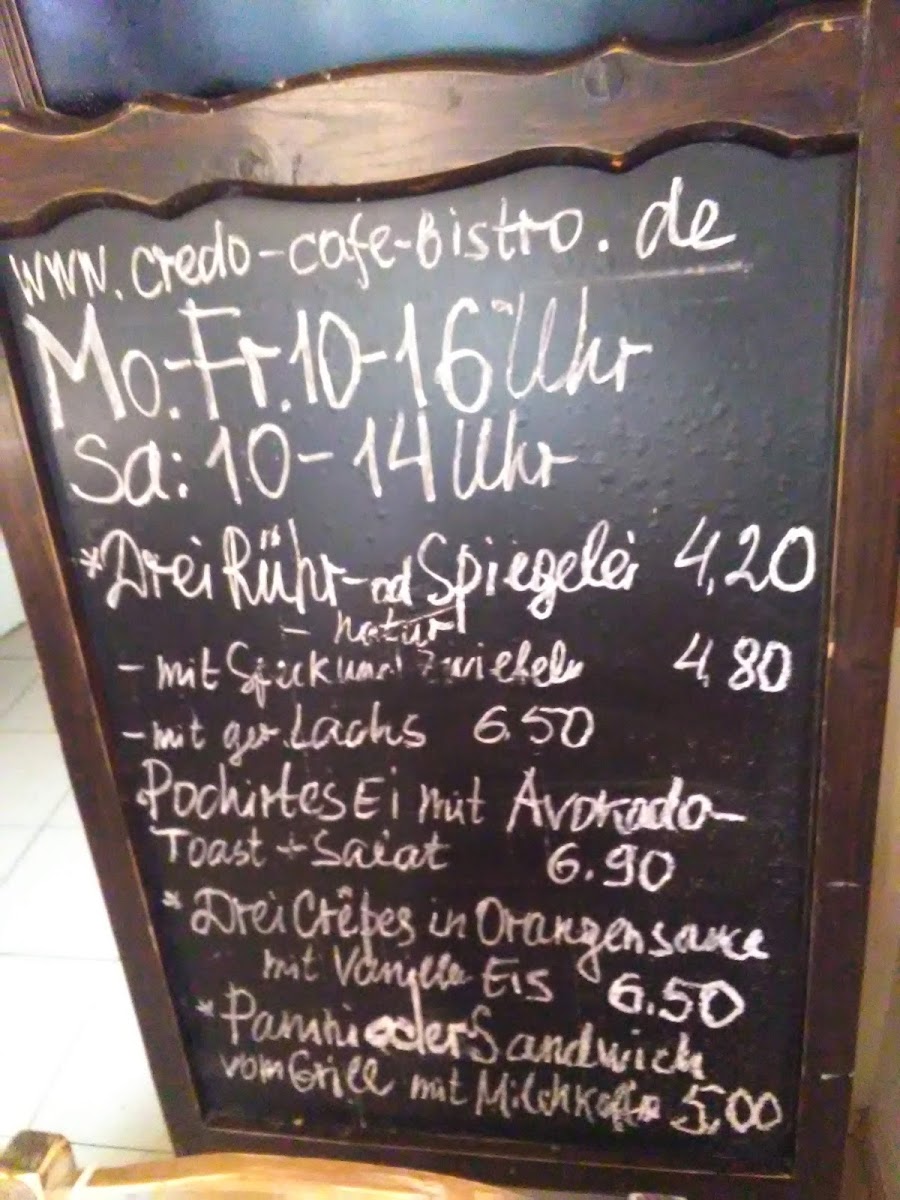 www.credo-cafe-Bistro.de
Mo.-Fr.10-16 Uhr
Sa: 10-14 Uhr
*Drei Rühr-od Spiegelei 4,20
- natur
- mit Speck und Zwiebeln 4,80
- mit ger. Lachs 6.50
Pochirtes Ei mit Avokado-
Toast + Salat 6.90
* Drei Crêpes in Orangensauce
mit Vanille Eis 6.50
* Panini oder Sandwich
vom Grill mit Milchkaffe 5,00